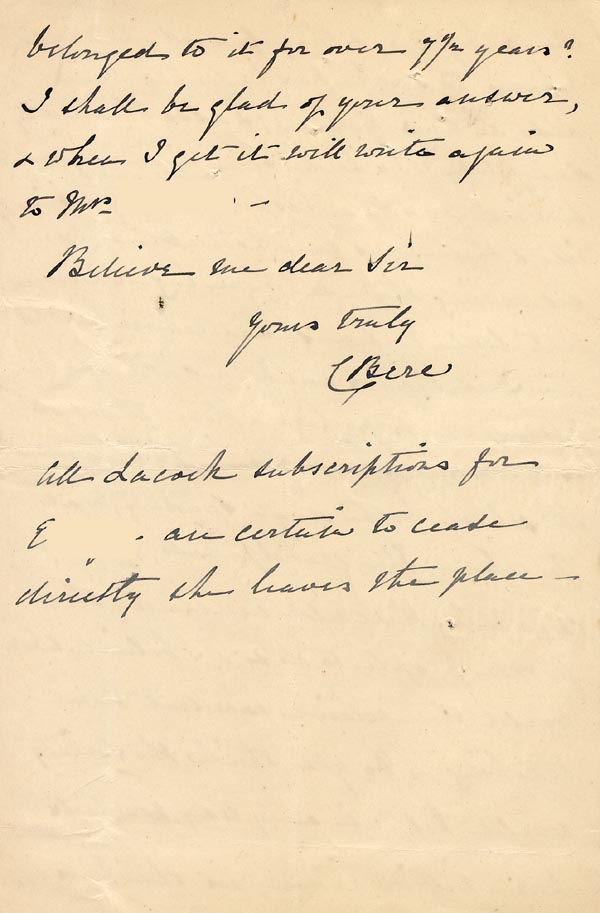 belonged to it for over 7½ years?
I shall be glad of your answer,
& when I get it will write again
to Mrs –
Believe me dear Sir
yours truly
C Bere
All Lacock subscriptions for
E . are certain to cease
directly she leaves the place –